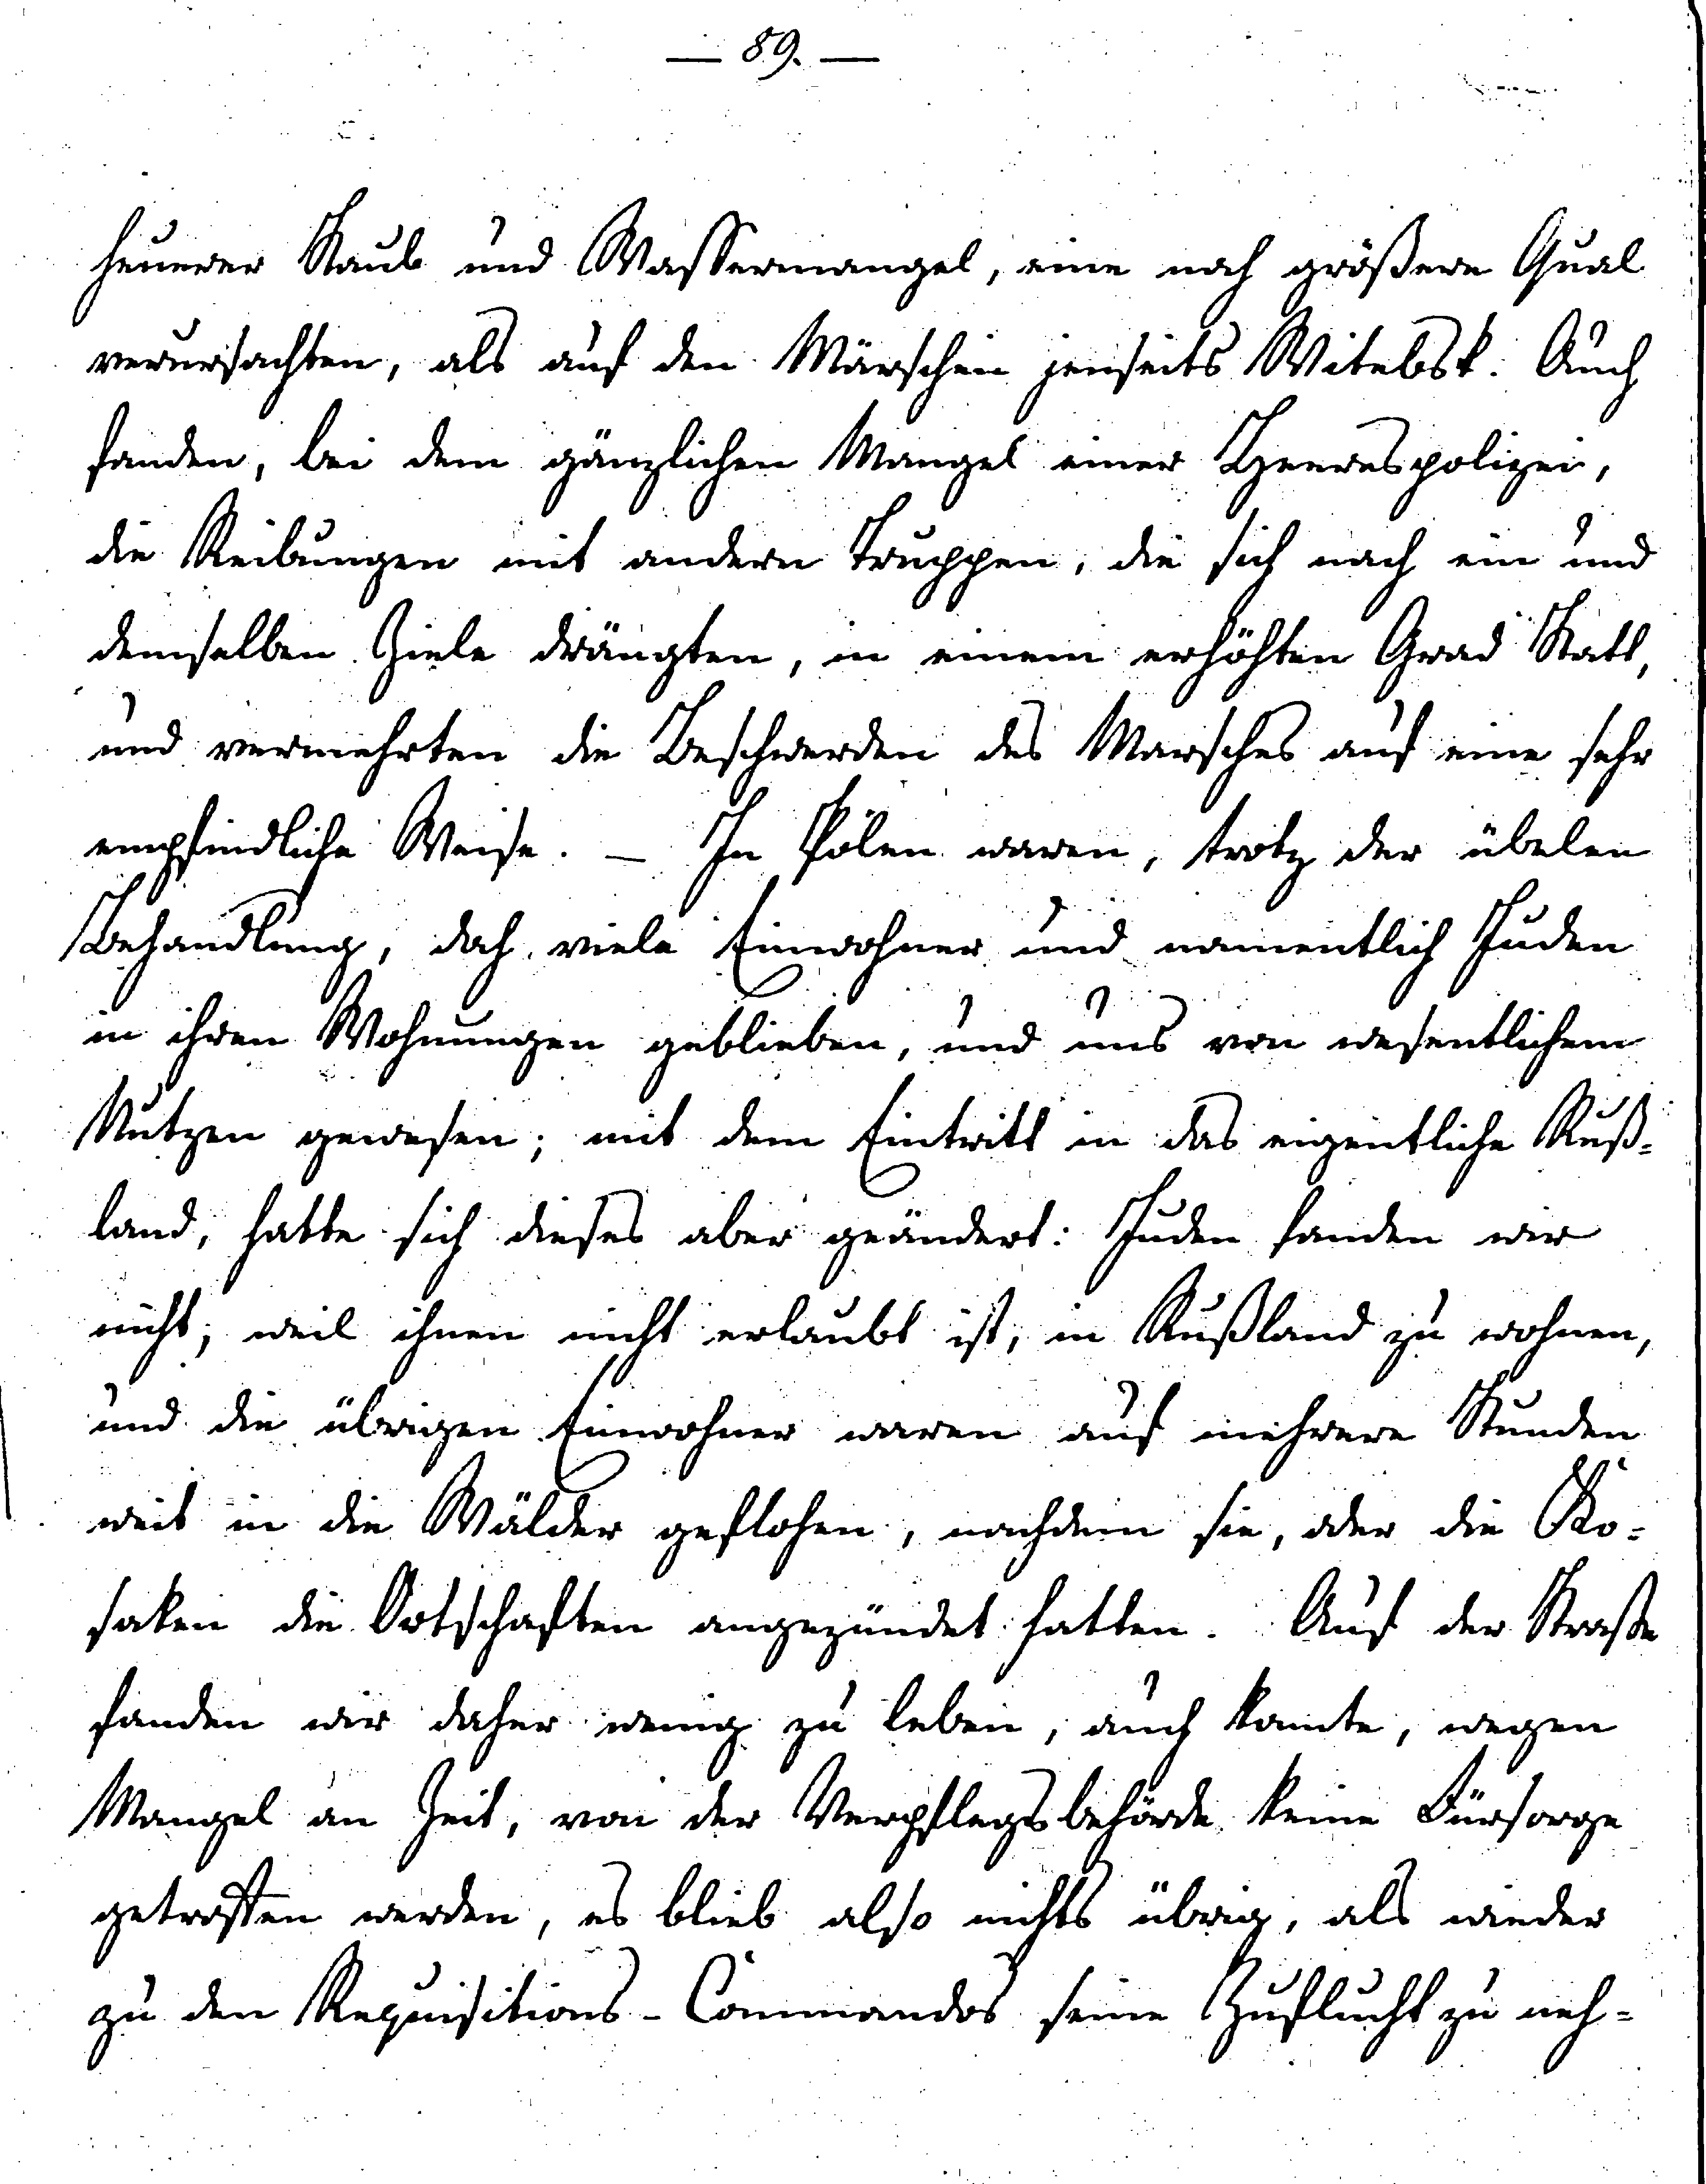 — 89. —
heuerer Staub und Wassermangel, eine noch größere Qual
verursachten, als auf den Märschen jenseits Witebsk. Auch
fanden, bei dem gänzlichen Mangel einer Heerespolizei,
die Reibungen mit andern Truppen, die sich nach ein und
demselben Ziele drängten, in einem erhöhten Grad Statt,
und vermehrten die Beschwerden des Marsches auf eine sehr
empfindliche Weise. — In Polen waren, trotz der übelen
Behandlung, doch viele Einwohner und namentlich Juden
in ihren Wohnungen geblieben, und uns von wesentlichem
Nutzen gewesen; mit dem Eintritt in das eigentliche Ruß-
land, hatte sich dieses aber geändert: Juden fanden wir
nicht; weil ihnen nicht erlaubt ist, in Rußland zu wohnen,
und die übrigen Einwohner waren auf mehrere Stunden
weit in die Wälder geflohen, nachdem sie, oder die Ko-
saken die Ortschaften angezündet hatten. Auf der Straße
fanden wir daher wenig zu leben, auch konnte, wegen
Mangel an Zeit, von der Verpflegsbehörde keine Fürsorge
getroffen werden, es blieb also nichts übrig, als wieder
zu den Requisitions-Commandos seine Zuflucht zu neh-